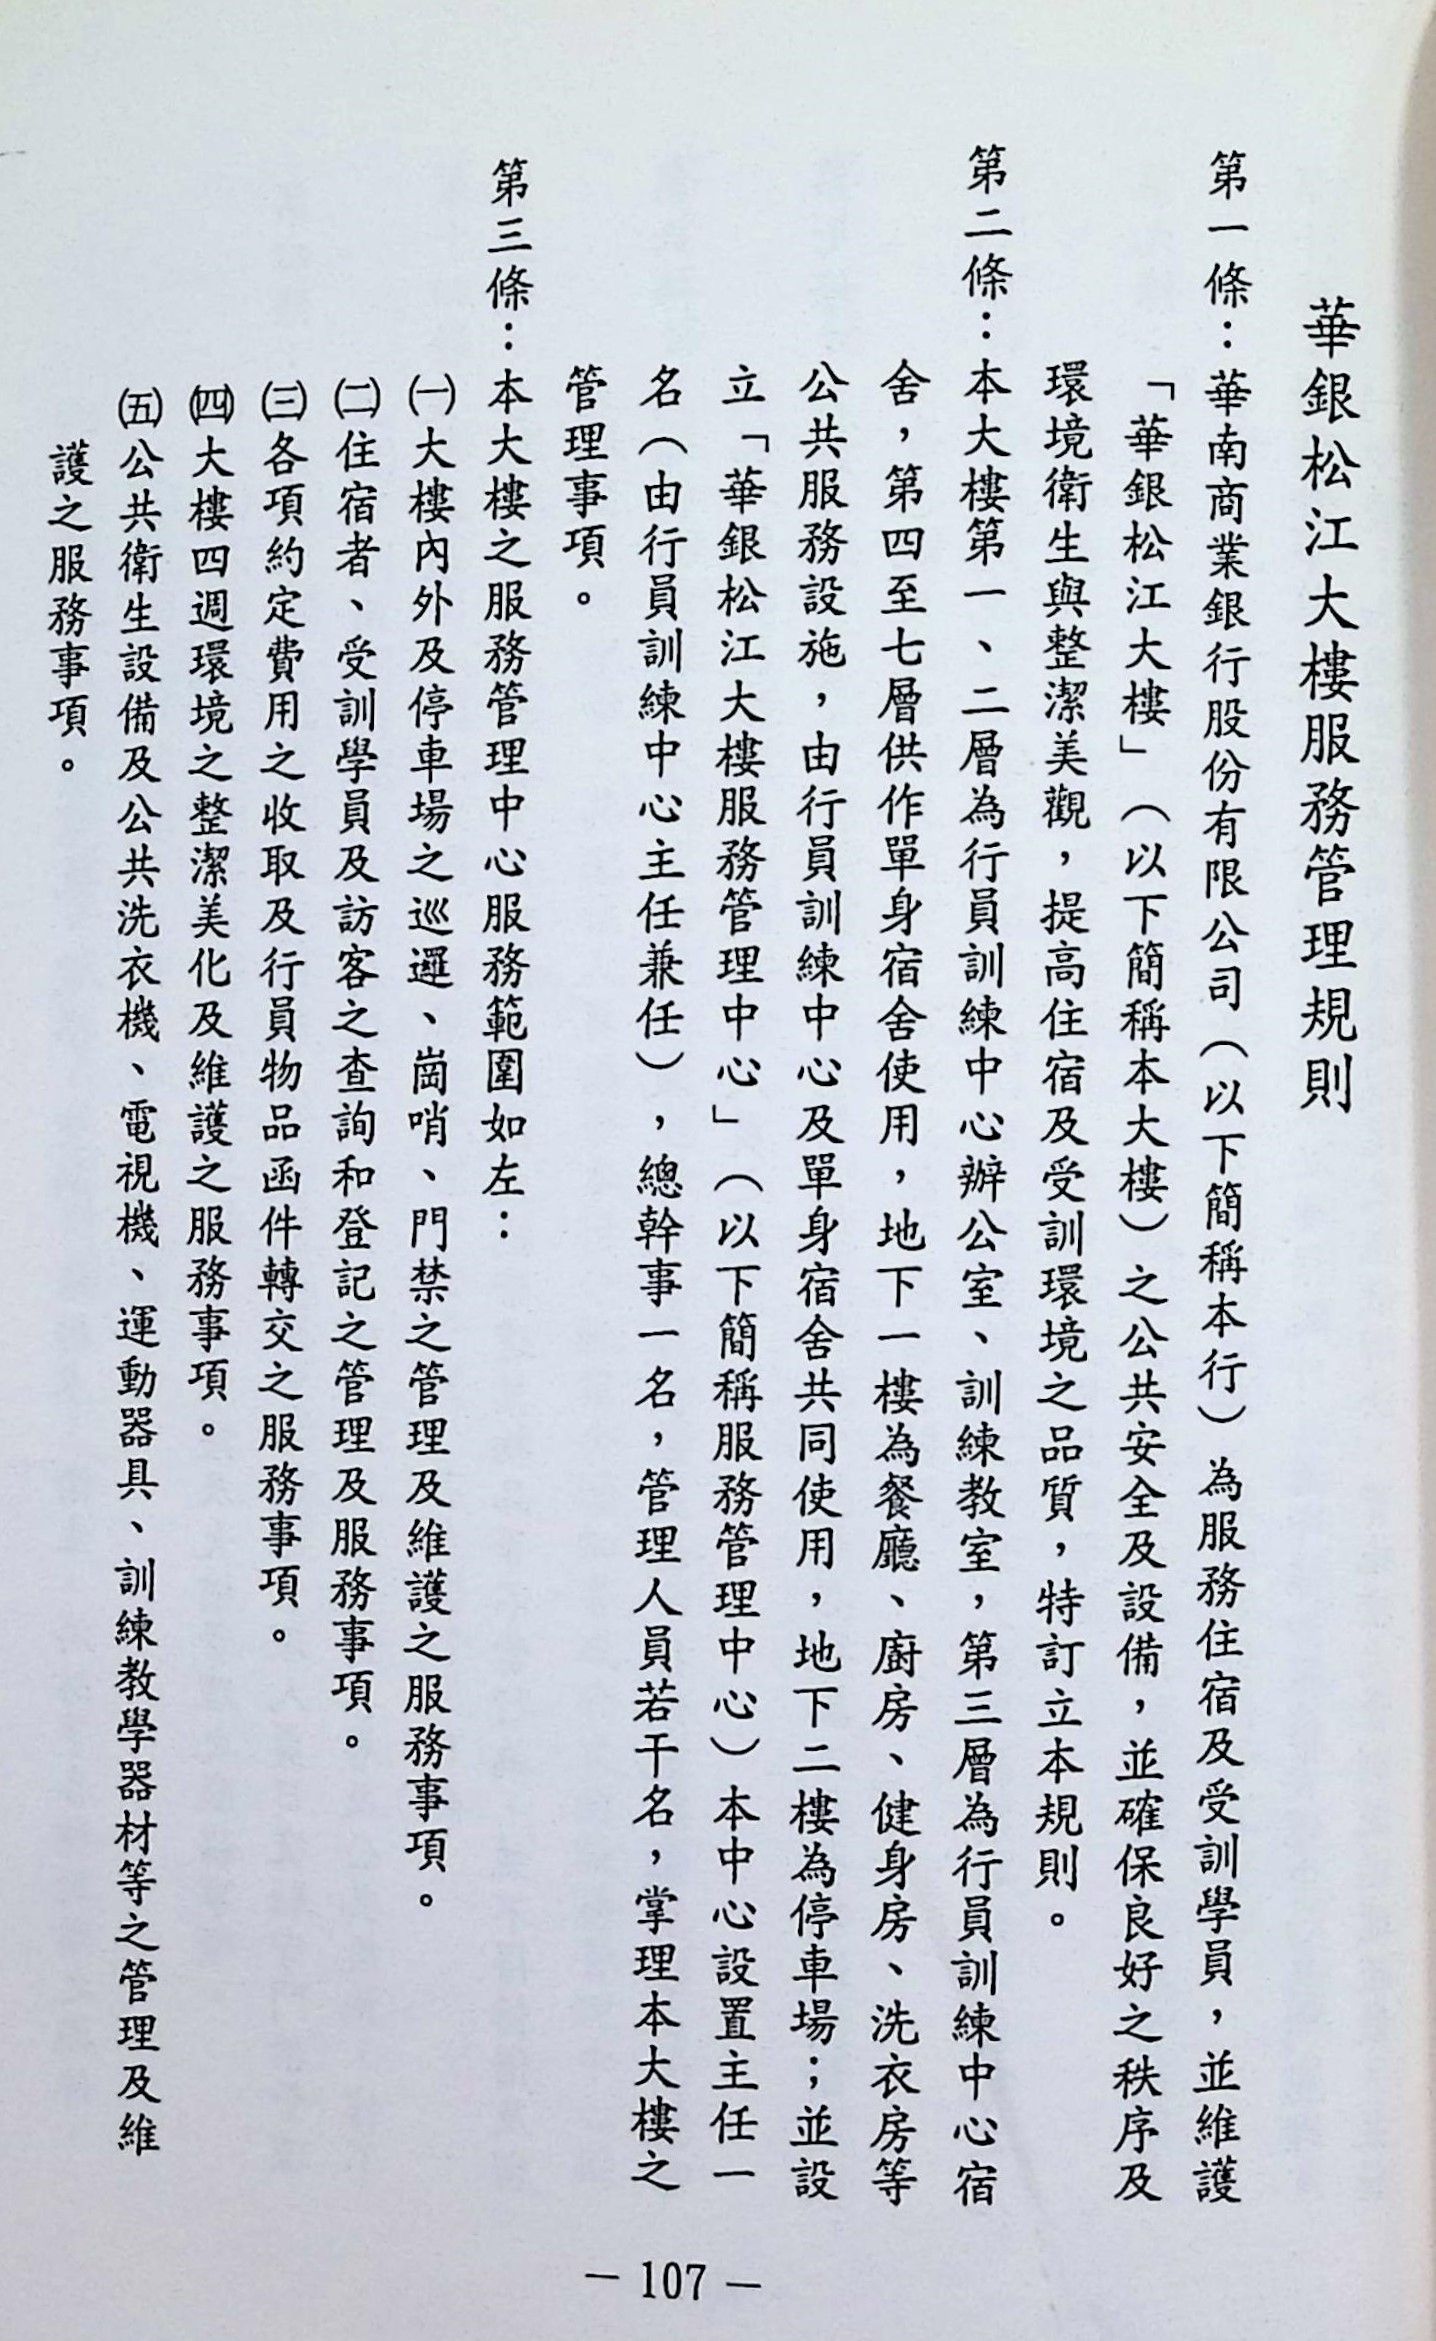 華銀松江大樓服務管理規則
第一條：華南商業銀行股份有限公司（以下簡稱本行）為服務住宿及受訓學員，並維護
「華銀松江大樓」（以下簡稱本大樓）之公共安全及設備，並確保良好之秩序及
環境衛生與整潔美觀，提高住宿及受訓環境之品質，特訂立本規則。
第二條：本大樓第一、二層為行員訓練中心辦公室、訓練教室，第三層為行員訓練中心宿
舍，第四至七層供作單身宿舍使用，地下一樓為餐廳、廚房、健身房、洗衣房等
公共服務設施，由行員訓練中心及單身宿舍共同使用，地下二樓為停車場；並設
立「華銀松江大樓服務管理中心」（以下簡稱服務管理中心）本中心設置主任一
名（由行員訓練中心主任兼任），總幹事一名，管理人員若干名，掌理本大樓之
管理事項。
第三條：本大樓之服務管理中心服務範圍如左：
㈠大樓內外及停車場之巡邏、崗哨、門禁之管理及維護之服務事項。
㈡住宿者、受訓學員及訪客之查詢和登記之管理及服務事項。
㈢各項約定費用之收取及行員物品函件轉交之服務事項。
㈣大樓四週環境之整潔美化及維護之服務事項。
㈤公共衛生設備及公共洗衣機、電視機、運動器具、訓練教學器材等之管理及維
護之服務事項。
— 107 —